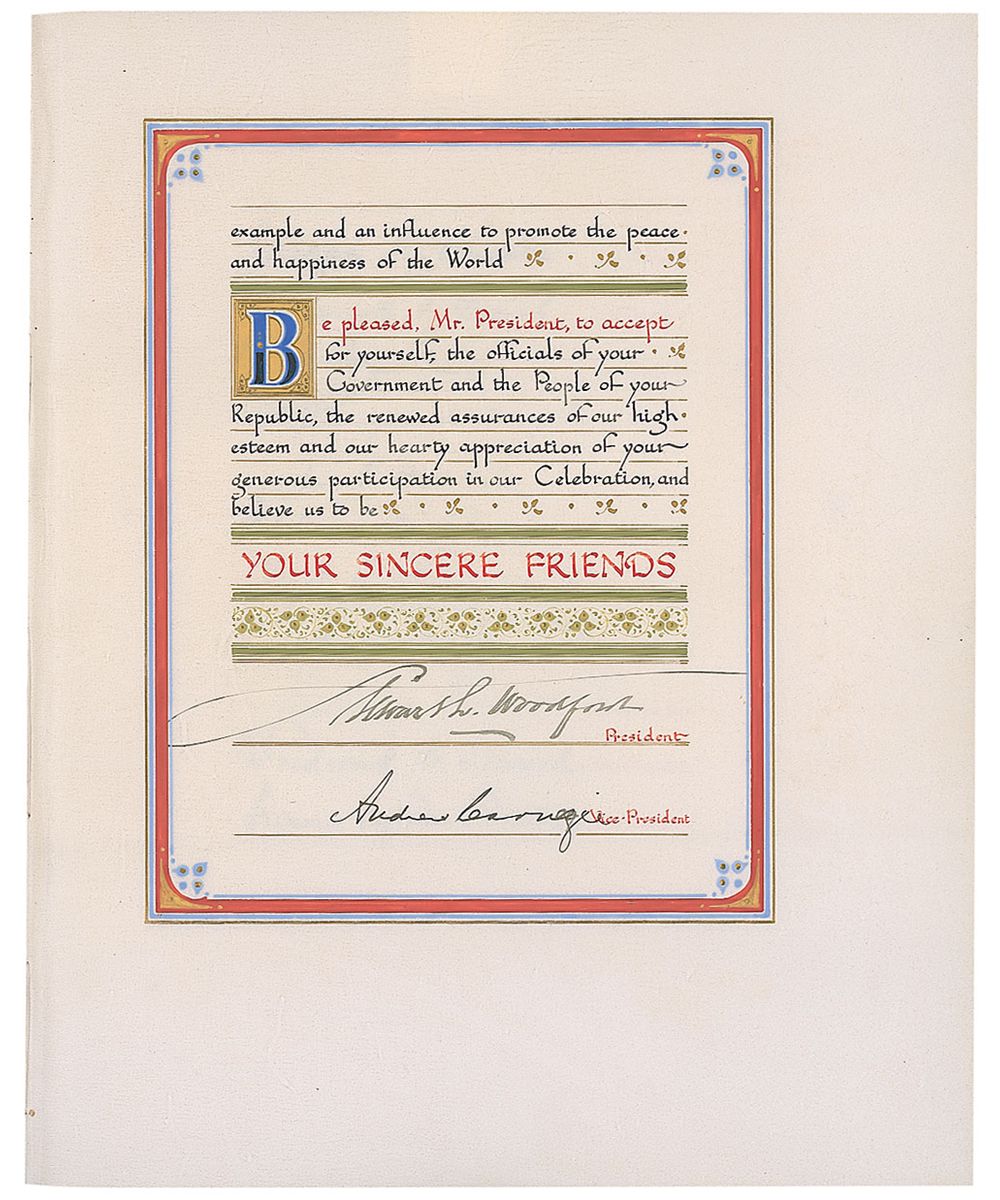 example and an influence to promote the peace
and happiness of the World
Be pleased, Mr. President, to accept
for yourself, the officials of your
Government and the People of your
Republic, the renewed assurances of our high
esteem and our hearty appreciation of your
generous participation in our Celebration, and
believe us to be
YOUR SINCERE FRIENDS
Stewart L. Woodford
President
Andrew Carnegie Vice-President